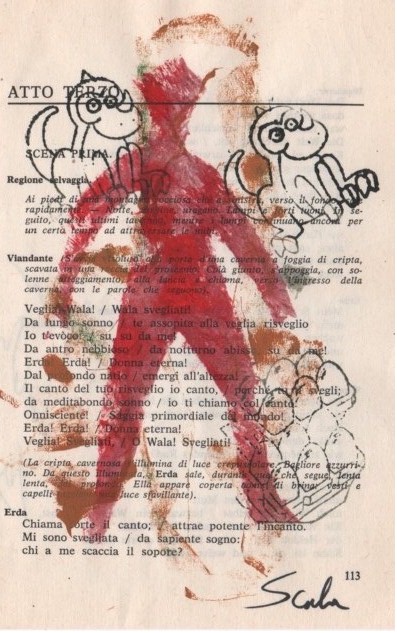 ATTO TERZO
SCENA PRIMA.
Regione selvaggia.
Ai piedi di una montagna rocciosa che
rapidamente.
guito,
un certo tempo ad
Viandante
scavata in una del proscenio. Colà giunto, s'appoggia, con so-
lenne atteggiamento, alla lancia e chiama, verso l'ingresso della
caverna, con le parole che seguono).
Veglia, Wala! / Wala svegliati!
Da lungo sonno / te assopita alla veglia risveglio
Io t'evoco: su, su da me!
Da antro nebbioso / da notturno abisso su da me!
Erda! Erda! / Donna eterna!
Dal profondo natìo / emergi all'altezza!
Il canto del tuo risveglio io canto, / perché tu ti svegli;
da meditabondo sonno / io ti chiamo col canto.
Onnisciente! / Saggia primordiale del mondo!
Erda! Erda! / Donna eterna!
Veglia! Svegliati, / O Wala! Svegliati!
(La cripta cavernosa s'illumina di luce crepuscolare. Bagliore azzurri-
no. Da questo illuminata, Erda sale, durante quel che segue, lenta
lenta, profondo. Ella appare coperta di brina; vesti e
capelli luce sfavillante).
Erda
Chiama forte il canto; / attrae potente l'incanto.
Mi sono svegliata / da sapiente sogno:
chi a me scaccia il sopore?
113